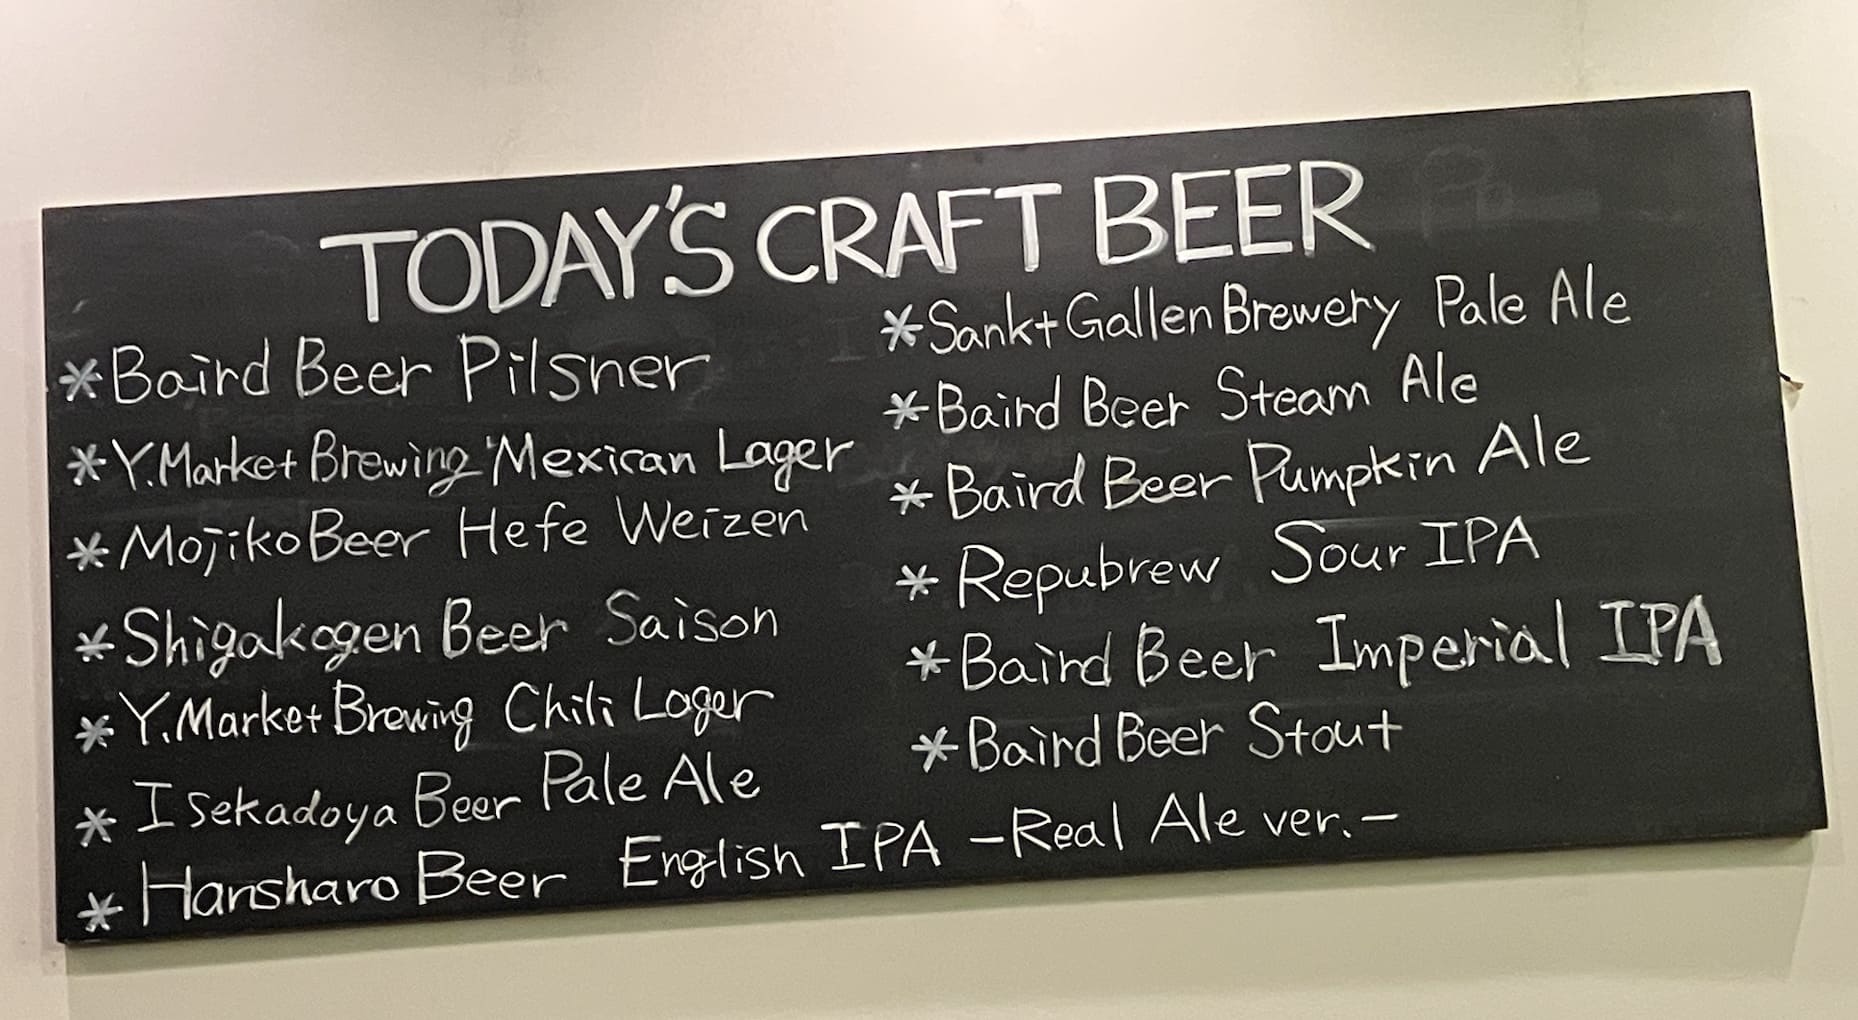 TODAY'S CRAFT BEER
*Baird Beer Pilsner
*Y.Market Brewing Mexican Lager
*Mojiko Beer Hefe Weizen
*Shigakogen Beer Saison
*Y.Market Brewing Chili Lager
*Isekadoya Beer Pale Ale
*Hansharo Beer English IPA -Real Ale ver.-
*Sankt Gallen Brewery Pale Ale
*Baird Beer Steam Ale
*Baird Beer Pumpkin Ale
*Repubrew Sour IPA
*Baird Beer Imperial IPA
*Baird Beer Stout